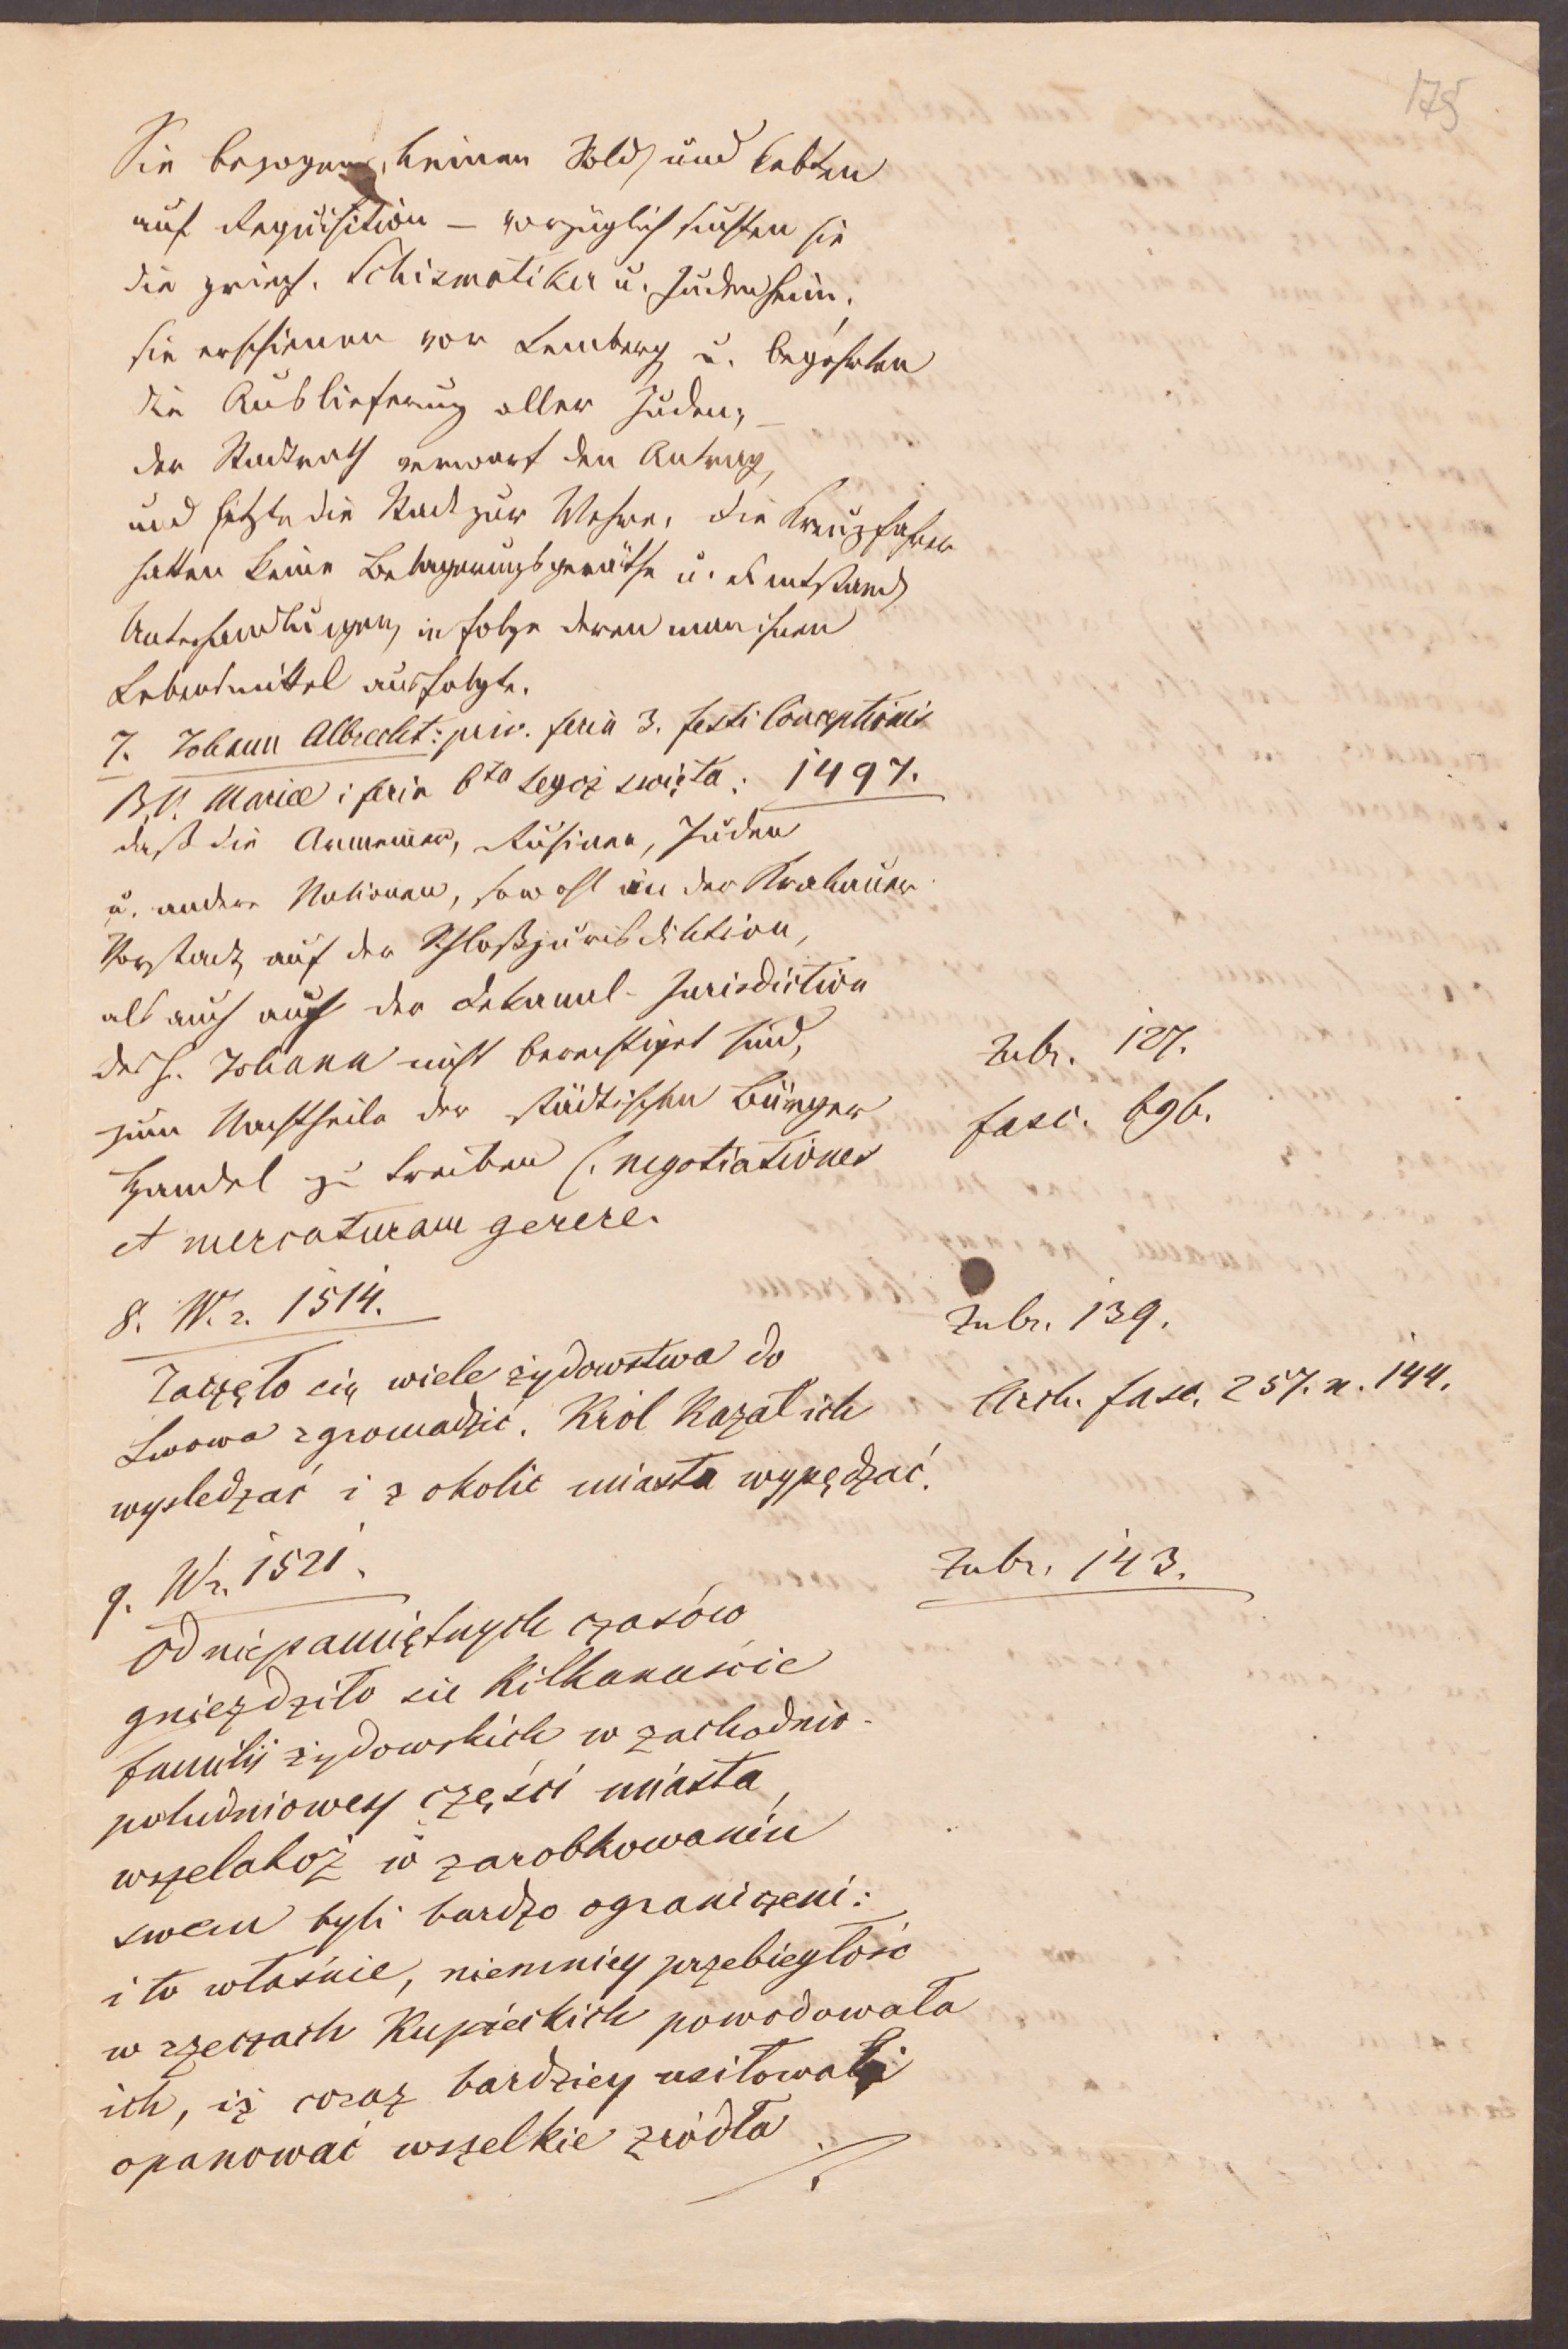 175
Sie bezogen keinen Sold, und lebten
auf Requisition – vorzüglich suchten sie
die griech. Schismatiker u. Juden heim,
sie erschienen vor Lemberg u. begehrten
die Auslieferung aller Juden; –
der Stadtrath verwarf den Antrag,
und setzte die Stadt zur Wehre, die Kreuzfahrer
hatten keine Belagerungsgeräthe u. es entstand
Unterhandlungen, in folge deren man ihnen
Lebensmittel ausfolgte.
7. Johann Albrecht: priv. feria 3. festi Conceptionis
B.V. Mariae i feria 6ta tegoż święta: 1497.
daß die Armenier, Rusinen, Juden
u. andere Nationen, sowohl in der Krakauer
Vorstadt, auf der Schloßjurisdiktion,
als auch auf der Jurisdiction
des h. Johann nicht berechtiget sind,
zum Nachtheile der städtischen Bürger
Handel zu treiben (. negotiationes
et mercaturam gerere.
Zubr. 127.
fasc. 696.
8. W r. 1514.
Zubr. 139.
Zaczęło się wiele żydowstwa do
Lwowa zgromadzić. Król Kazał ich
wysledzać i z okolic miasta wypędzać.
Arch. fasc. 257. n. 144.
9. W r. 1521.
Zubr. 143.
Od niepamiętnych czasów
gnieździło sie Kilkanaście
familij żydowskich w zachodnio-
południowey części miasta,
wszelakoż w zarobkowaniu
swem byli bardzo ograniczeni:
i to właśnie, niemniey przebiegłość
w rzeczach Kupieckich powodowała
ich, iż coraz bardziey usiłowali
opanować wszelkie źródła ./.